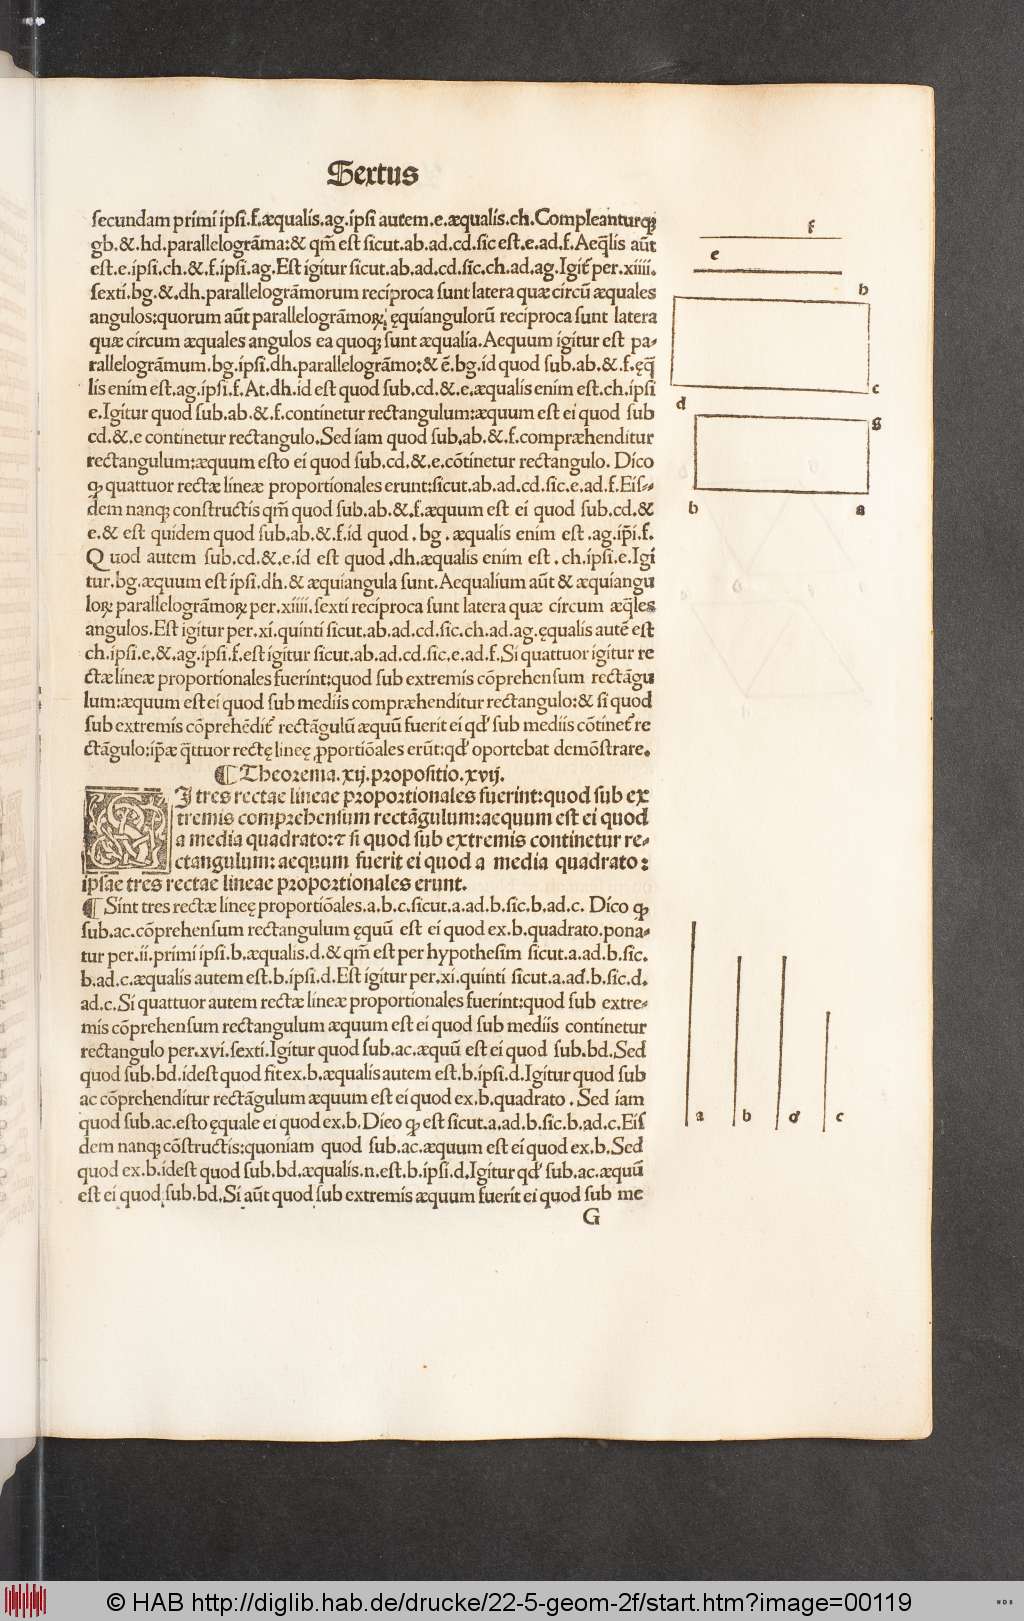 Sextus
secundam primi ipsi.f.æqualis.ag.ipsi autem.e.æqualis.ch.Compleanturqꝫ
gb.&.hd.parallelogrāma:& qm̄ est sicut.ab.ad.cd.sic est.e.ad.f.Aeq̄lis aūt
est.e.ipsi.ch.&.f.ipsi.ag.Est igitur sicut.ab.ad.cd.sic.ch.ad.ag.Igit᷑ per.xiiii.
sexti.bg.&.dh.parallelogrāmorum reciproca sunt latera quæ circū æquales
angulos:quorum aūt parallelogrāmoꝝ ęquiangulorū reciproca sunt latera
quæ circum æquales angulos ea quoqꝫ sunt æqualia.Aequum igitur est pa-
rallelogrāmum.bg.ipsi.dh.parallelogrāmo:& ē.bg.id quod sub.ab.&.f.ęq̄
lis enim est.ag.ipsi.f.At.dh.id est quod sub.cd.&.e.æqualis enim est.ch.ipsi
e.Igitur quod sub.ab.&.f.continetur rectangulum:æquum est ei quod sub
cd.&.e continetur rectangulo.Sed iam quod sub.ab.&.f.compræhenditur
rectangulum:æquum esto ei quod sub.cd.&.e.cōtinetur rectangulo. Dico
ꝙ quattuor rectæ lineæ proportionales erunt:sicut.ab.ad.cd.sic.e.ad.f.Eis-
dem nanqꝫ constructis qm̄ quod sub.ab.&.f.æquum est ei quod sub.cd.&
e.& est quidem quod sub.ab.&.f.id quod.bg.æqualis enim est.ag.ip̄i.f.
Quod autem sub.cd.&.e.id est quod.dh.æqualis enim est.ch.ipsi.e.Igi
tur.bg.æquum est ipsi.dh.& æquiangula sunt.Aequalium aūt & æquiangu
loꝝ parallelogrāmoꝝ per.xiiii.sexti reciproca sunt latera quæ circum æq̄les
angulos.Est igitur per.xi.quinti sicut.ab.ad.cd.sic.ch.ad.ag.ęqualis autē est
ch.ipsi.e.&.ag.ipsi.f.est igitur sicut.ab.ad.cd.sic.e.ad.f.Si quattuor igitur re
ctæ lineæ proportionales fuerint:quod sub extremis cōprehensum rectāgu
lum:æquum est ei quod sub mediis compræhenditur rectangulo:& si quod
sub extremis cōprehēdit᷑ rectāgulū æquū fuerit ei qd' sub mediis cōtinet᷑ re
ctāgulo:ip̄æ q̄ttuor rectę lineę ꝓportiōales erūt:qd' oportebat demōstrare.
¶ Theorema.xij.propositio.xvij.
SI tres rectae lineae proportionales fuerint:quod sub ex
tremis comprehensum rectāgulum:aequum est ei quod
a media quadrato:⁊ si quod sub extremis continetur re-
ctangulum:aequum fuerit ei quod a media quadrato:
ipsae tres rectae lineae proportionales erunt.
¶ Sint tres rectæ lineę proportiōales.a.b.c.sicut.a.ad.b.sic.b.ad.c. Dico ꝙ
sub.ac.cōprehensum rectangulum ęquū est ei quod ex.b.quadrato.pona-
tur per.ii.primi ipsi.b.æqualis.d.& qm̄ est per hypothesim sicut.a.ad.b.sic.
b.ad.c.æqualis autem est.b.ipsi.d.Est igitur per.xi.quinti sicut.a.ad.b.sic.d.
ad.c.Si quattuor autem rectæ lineæ proportionales fuerint:quod sub extre-
mis cōprehensum rectangulum æquum est ei quod sub mediis continetur
rectangulo per.xvi.sexti.Igitur quod sub.ac.æquū est ei quod sub.bd.Sed
quod sub.bd.idest quod fit ex.b.æqualis autem est.b.ipsi.d.Igitur quod sub
ac cōprehenditur rectāgulum æquum est ei quod ex.b.quadrato.Sed iam
quod sub.ac.esto ęquale ei quod ex.b.Dico ꝙ est sicut.a.ad.b.sic.b.ad.c.Eis
dem nanqꝫ cōstructis:quoniam quod sub.ac.æquum est ei quod ex.b.Sed
quod ex.b.idest quod sub.bd.æqualis.n.est.b.ipsi.d.Igitur qd' sub.ac.æquū
est ei quod sub.bd.Si aūt quod sub extremis æquum fuerit ei quod sub me
G
f
e
h
c
d
g
b
a
a b d c
© HAB http://diglib.hab.de/drucke/22-5-geom-2f/start.htm?image=00119